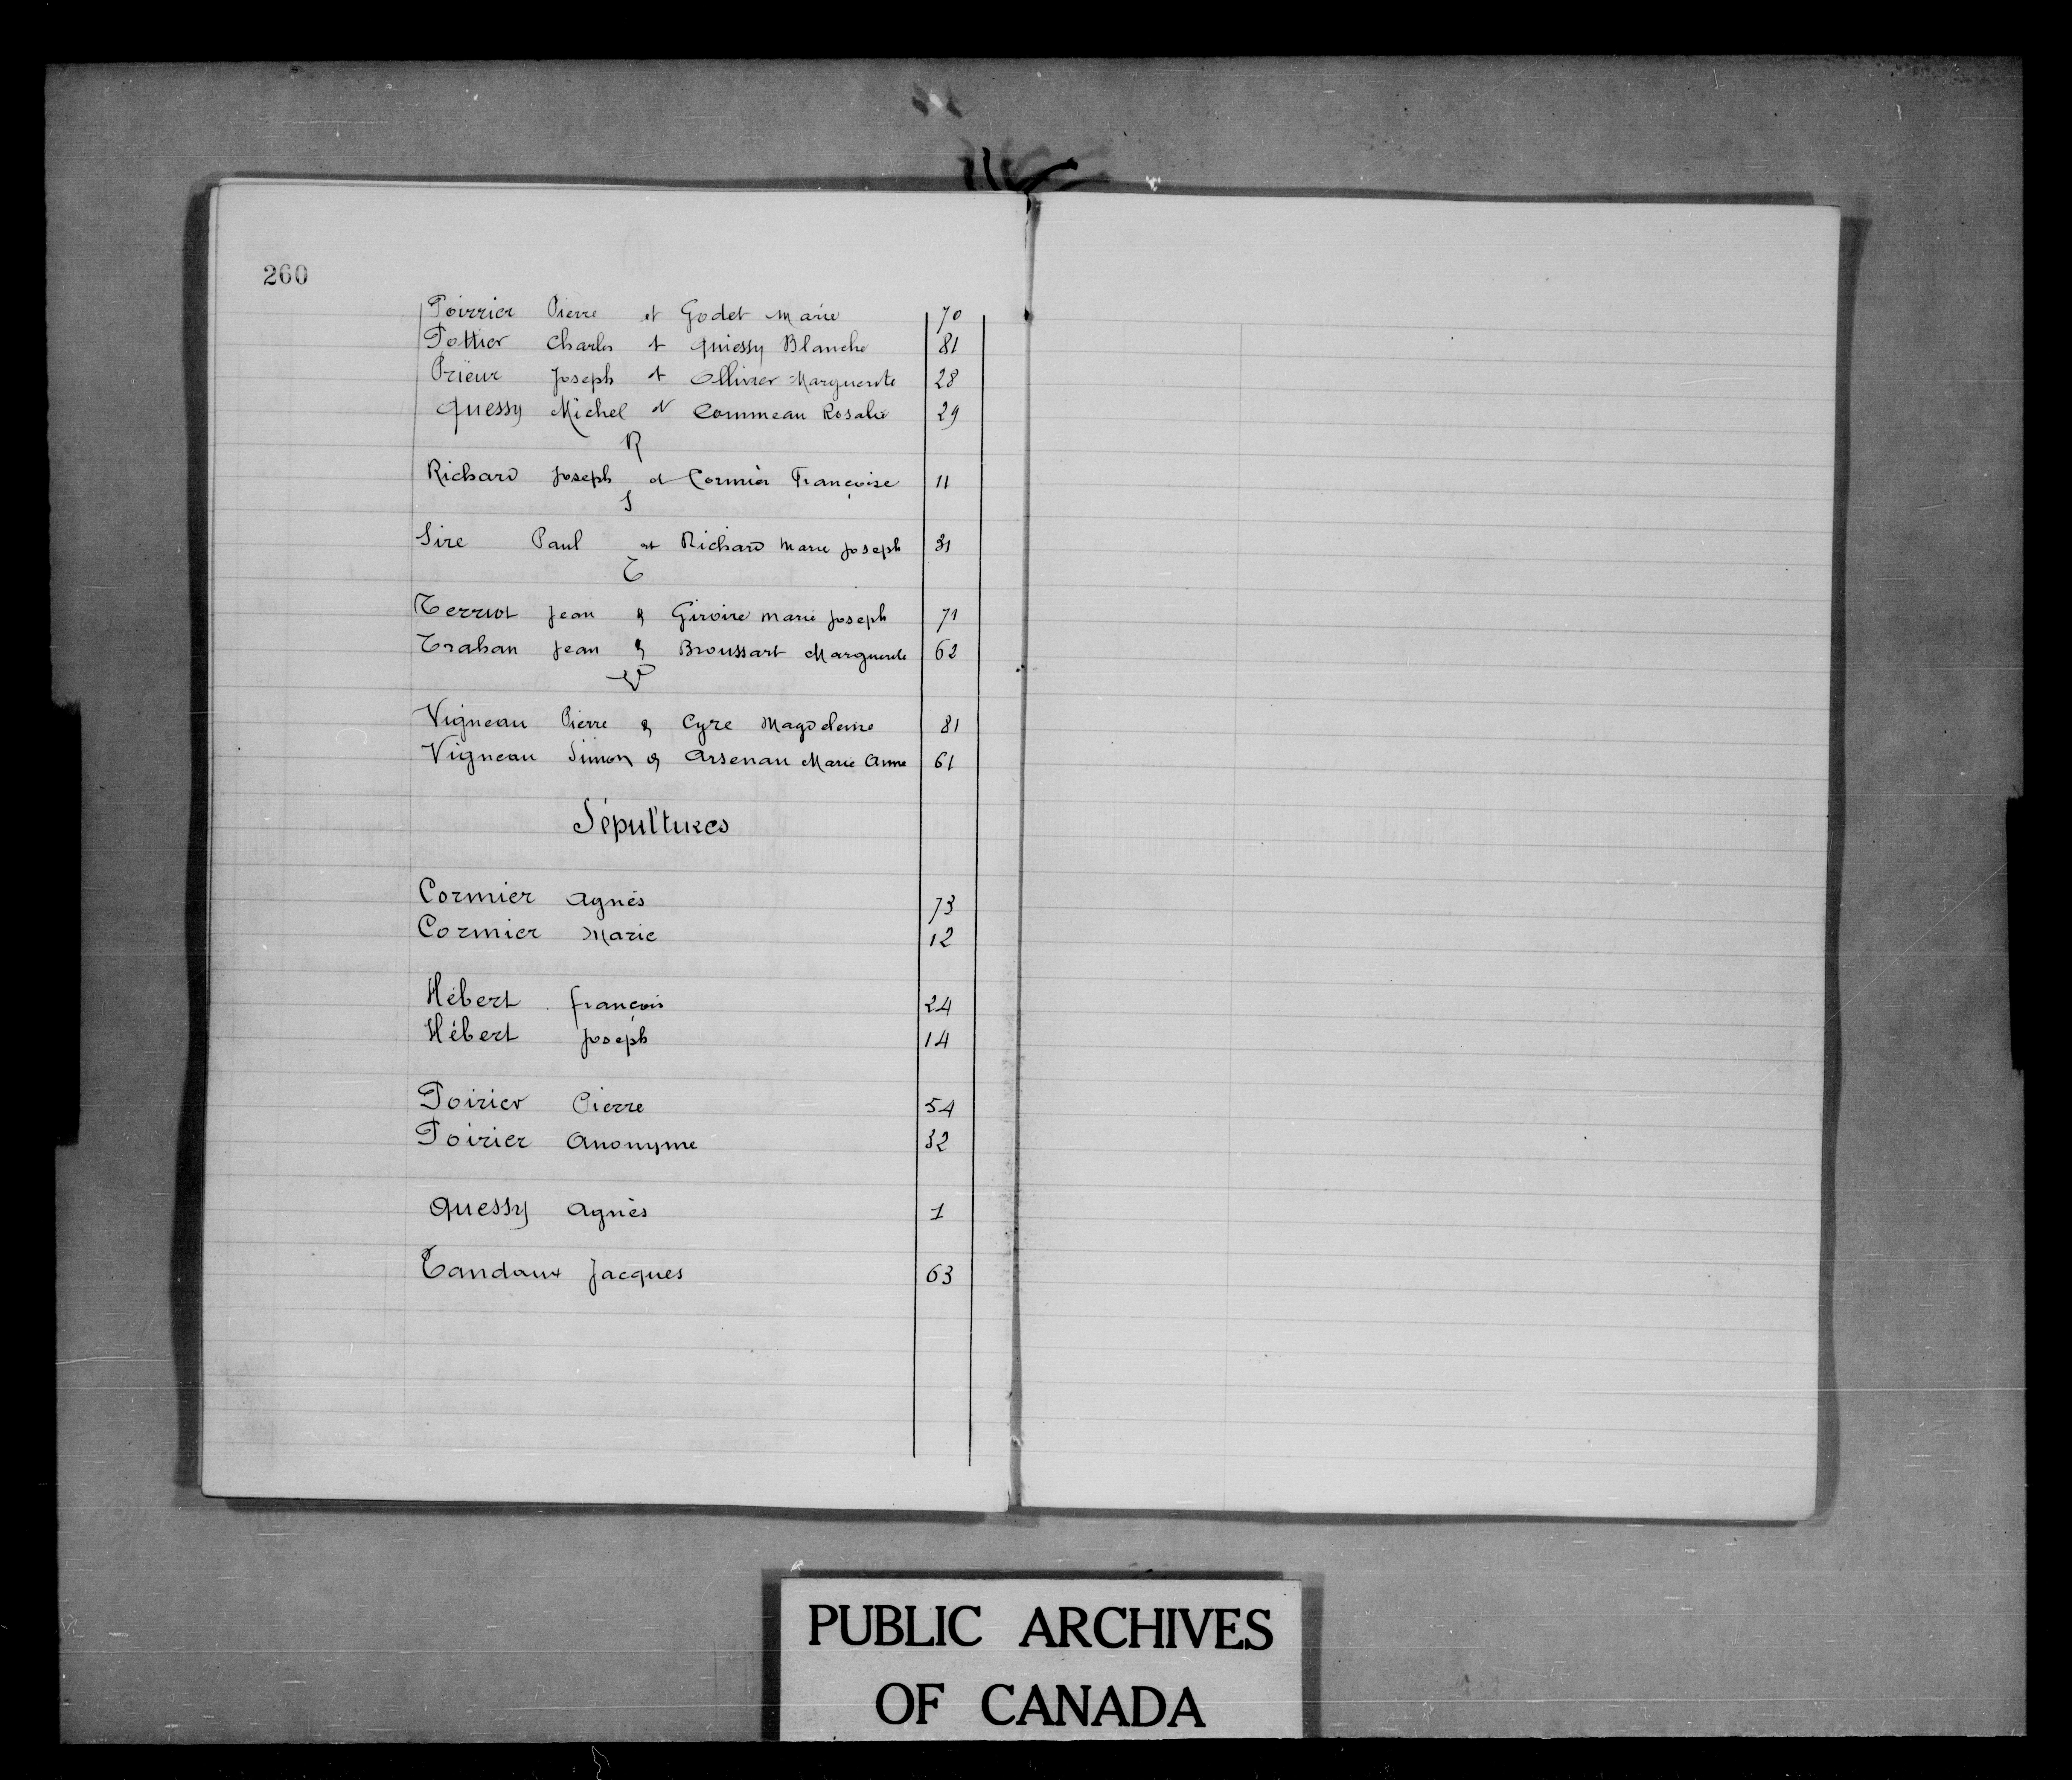 260
Poirrier Pierre et Godet Marie 70
Pottier Charles et Quiessy Blanche 81
Prieur Joseph et Ollivier Marguerite 28
Quessy Michel et Commeau Rosalie 29
R
Richard Joseph et Cormier Françoise 11
S
Sire Paul et Richard Marie Joseph 31
T
Terriot Jean & Giroire Marie Joseph 71
Trahan Jean & Broussart Marguerite 62
V
Vigneau Pierre & Cyre Magdeleine 81
Vigneau Simon & Arsenau Marie Anne 61
Sépultures
Cormier Agnés 73
Cormier Marie 12
Hébert françois 24
Hébert Joseph 14
Poirier Pierre 54
Poirier Anonyme 32
Quessy Agnès 1
Tandaux Jacques 63
PUBLIC ARCHIVES
OF CANADA